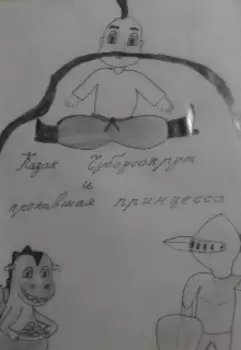 Казак Чубусокрут
и
пропавшая принцесса